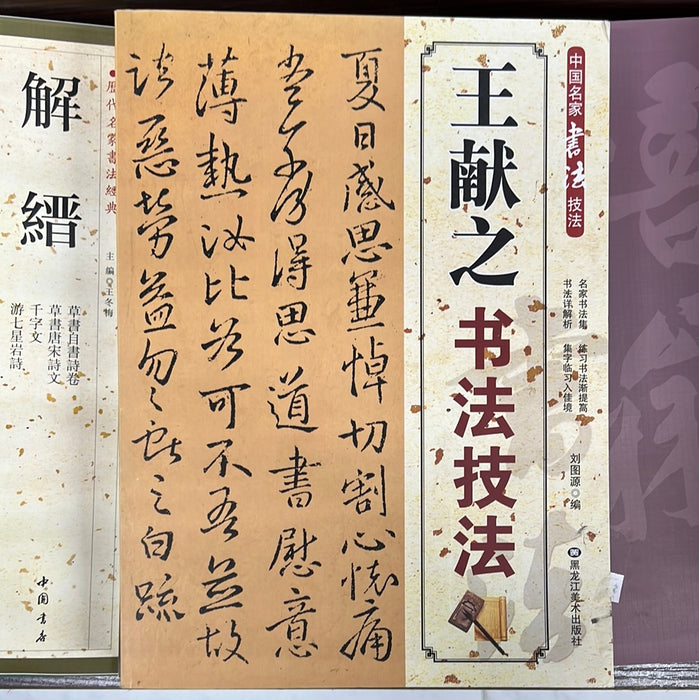 王献之
书法技法
中国名家书法技法
名家书法集 练习书法渐提高
书法详解析 集字临习入佳境
刘图源 编
黑龙江美术出版社
夏日感思兼悼切割心懷痛
當奈何得思道書慰意
薄熱汝比各可不吾並故
諸惡勞益勿勿獻之白疏
●歷代名家書法經典
主編 王冬梅
解縉
草書自書詩卷
草書唐宋詩文
千字文
游七星岩詩
中国書店